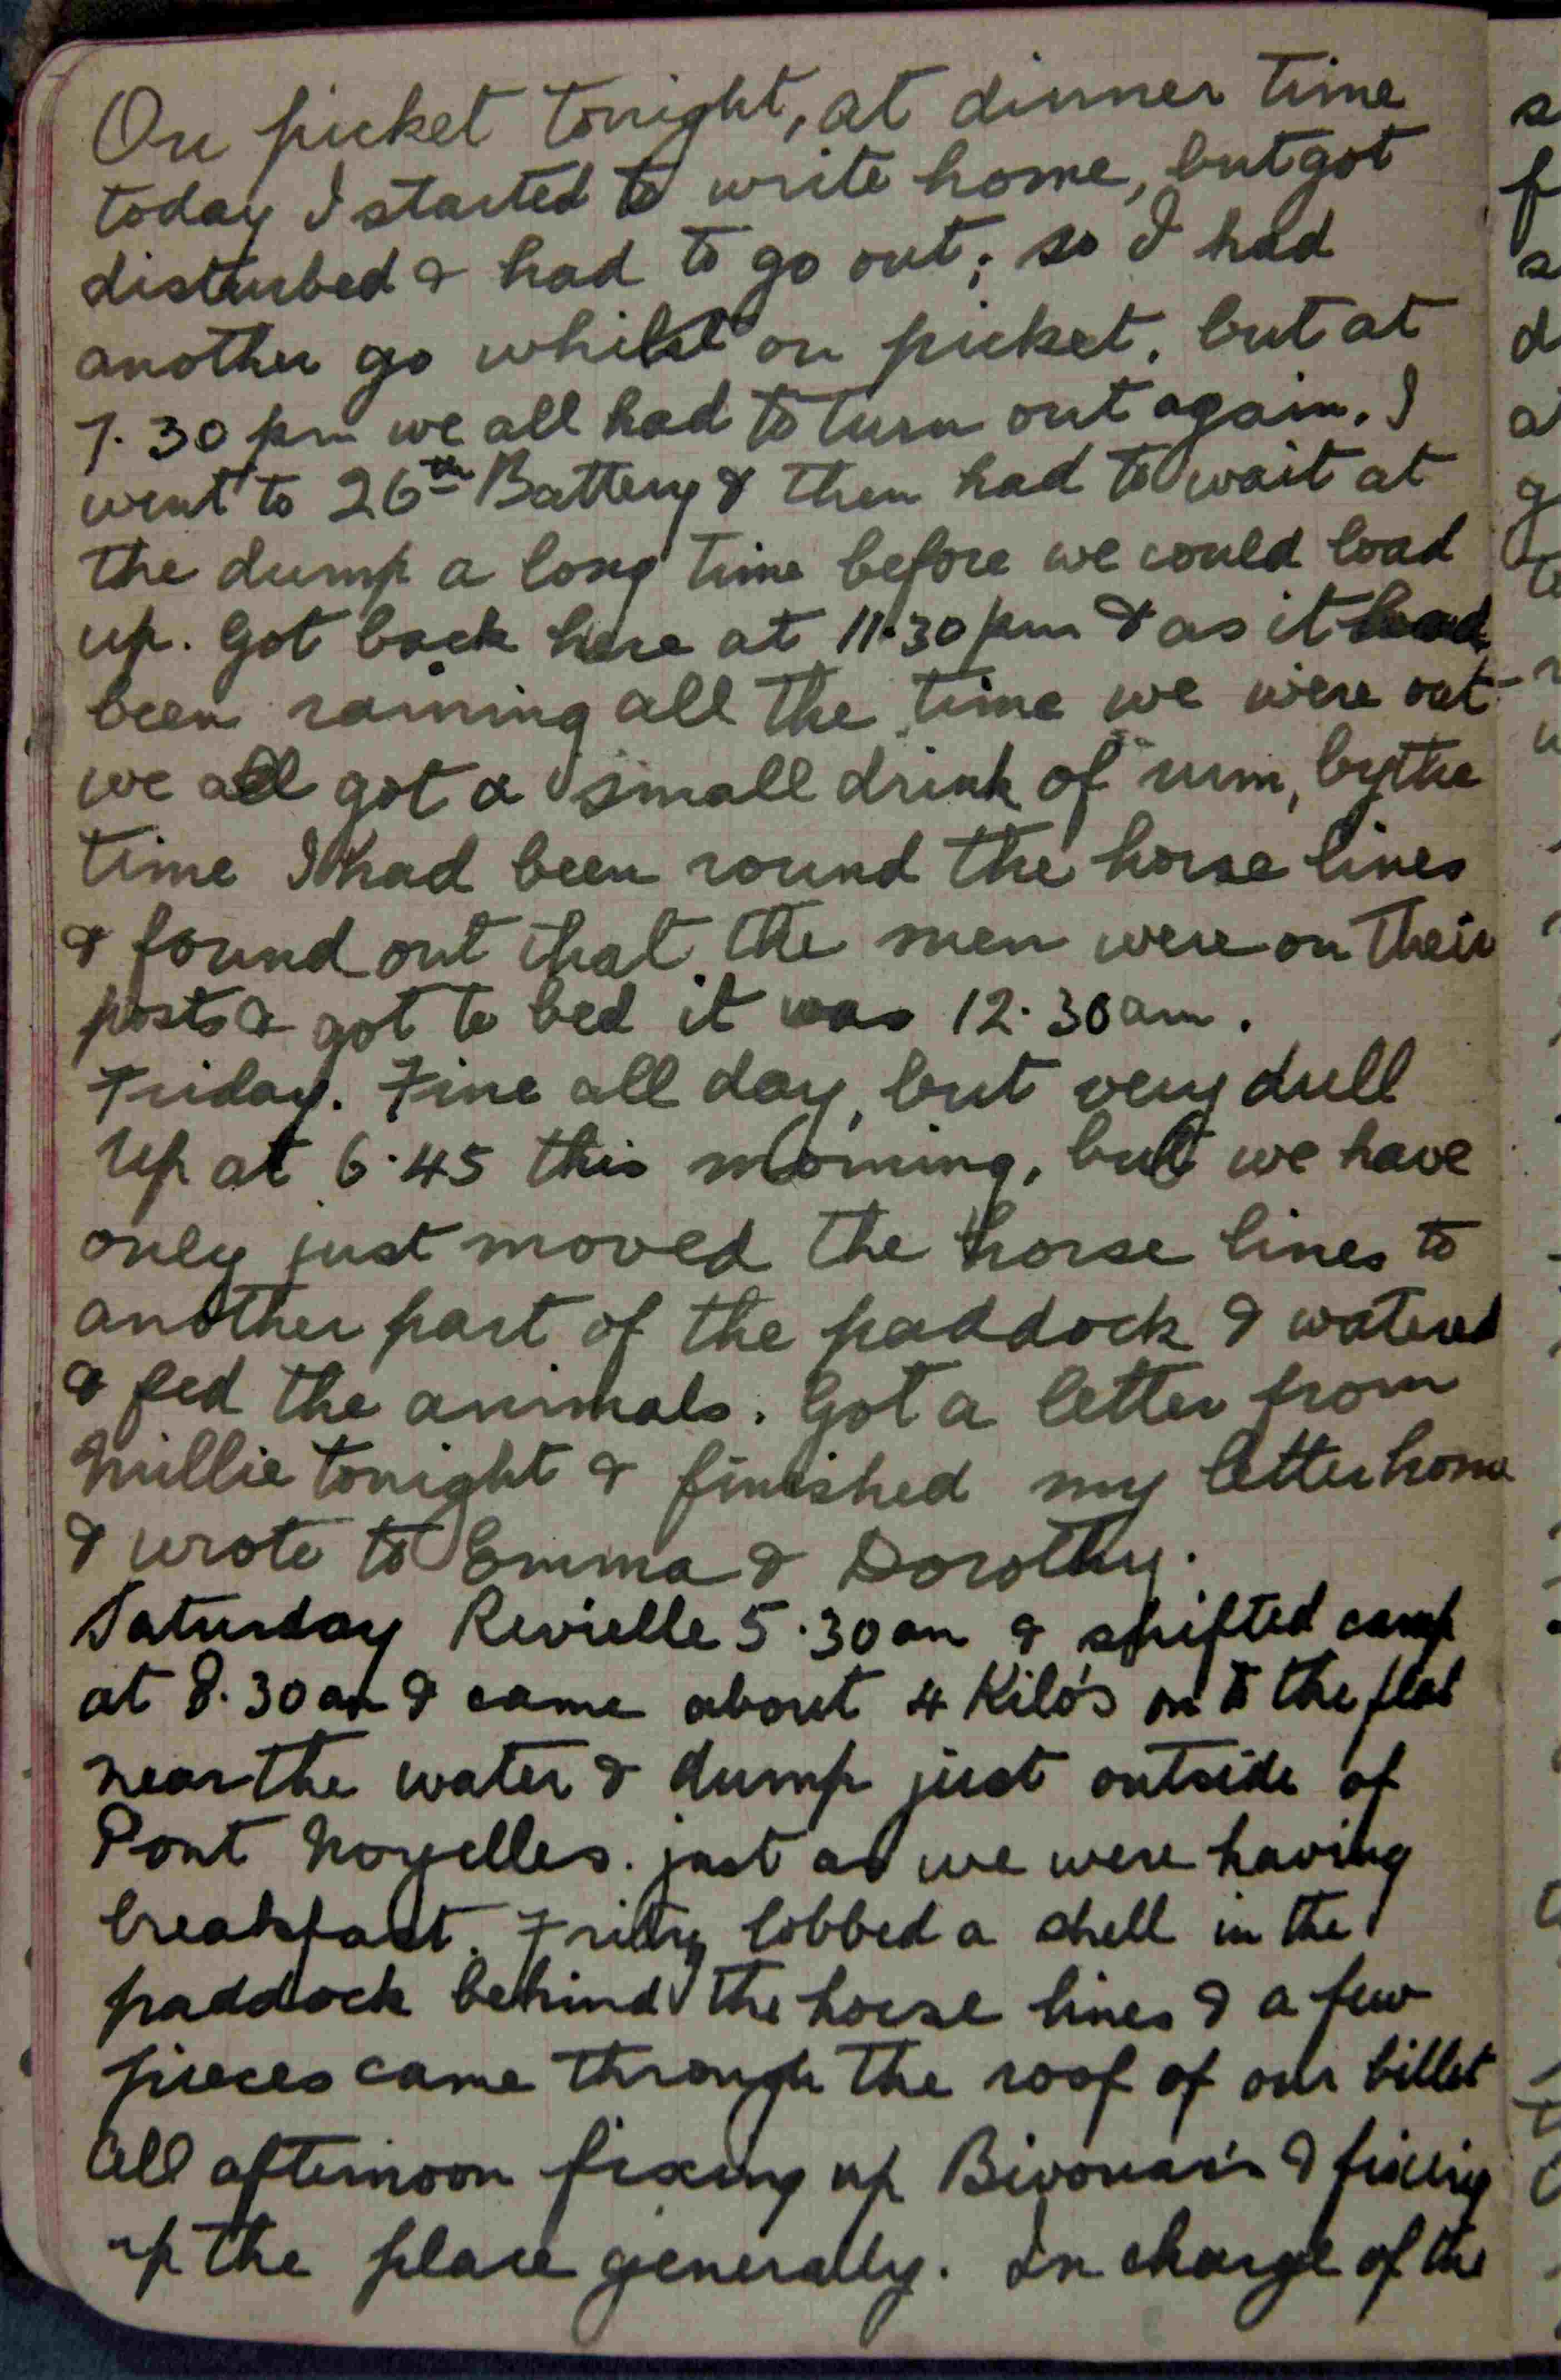 On picket tonight, at dinner time
today I started to write home, but got
disturbed & had to go out; so I had
another go whilst on picket, but at
7.30 pm we all had to turn out again. I
went to 26th Battery & then had to wait at
the dump a long time before we could load
up. Got back here at 11.30 pm & as it had
been raining all the time we were out
we all got a small drink of rum, by the
time I had been round the horse lines
& found out that the men were on their
posts & got to bed it was 12.30 am.
Friday. Fine all day, but very dull
up at 6.45 this morning, but we have
only just moved the horse lines to
another part of the paddock & watered
& fed the animals. Got a letter from
Millie tonight & finished my letter home
& wrote to Emma & Dorothy.
Saturday Revielle 5.30 am & shifted camp
at 8.30 am & came about 4 Kilo's on to the flat
near the water & dump just outside of
Pont Noyelles. just as we were having
breakfast. Fritz lobbed a shell in the
paddock behind the horse lines & a few
pieces came through the roof of our billet
All afternoon fixing up Bivouac's & fixing
up the place generally. In charge of the